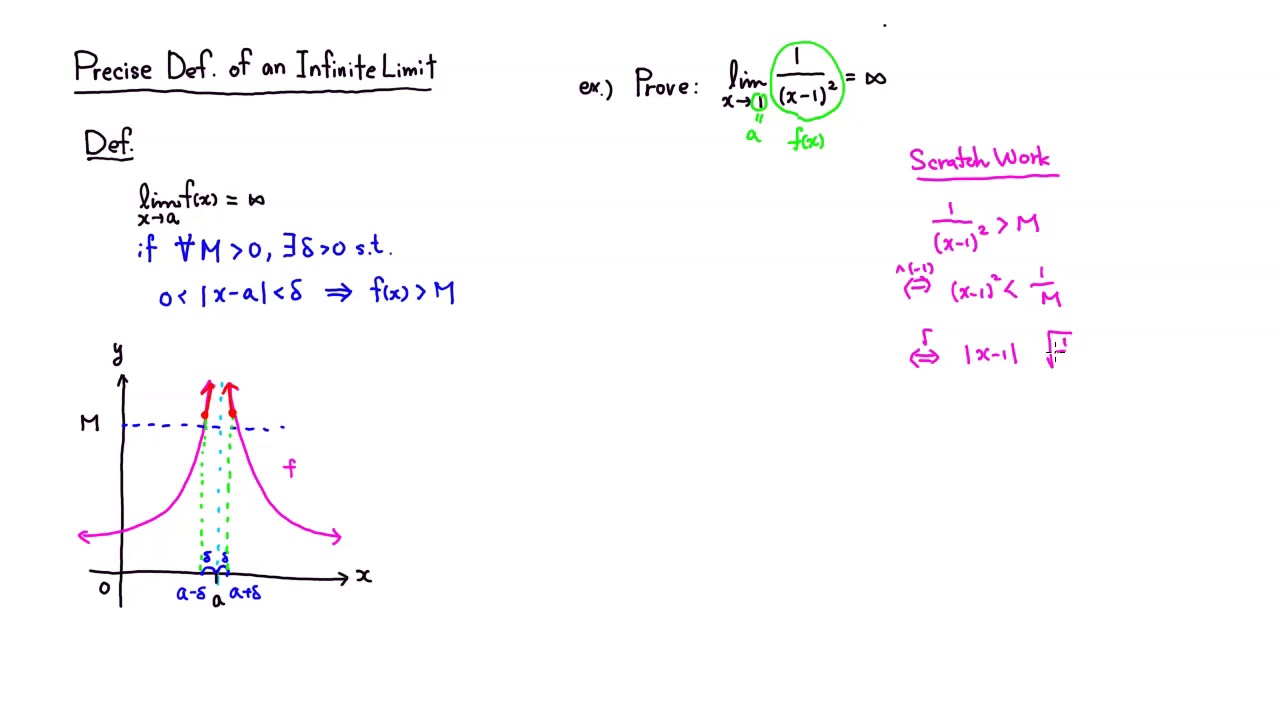 Precise Def. of an Infinite Limit
Def.
lim f(x) = ∞
x→a
if ∀M>0, ∃δ>0 s.t.
0 < |x-a| < δ ⇒ f(x) > M
y
M
f
δ δ
0 a-δ a a+δ x
ex.) Prove: lim 1/(x-1)² = ∞
x→1
a f(x)
Scratch Work
1/(x-1)² > M
^(-1)
⇔ (x-1)² < 1/M
√
⇔ |x-1| √1